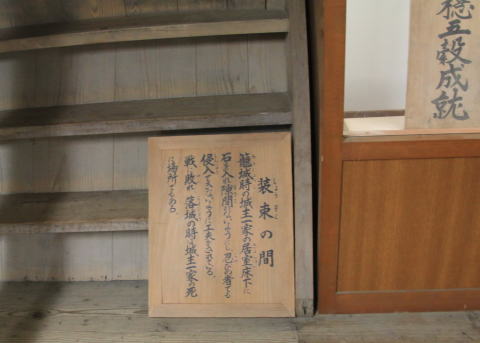 穏五穀成就
装束の間
籠城時の城主一家の居室床下に
石を入れ隙間のないようにし忍びの者でも
侵入できないように工夫がされている。
戦に敗れ落城の時は城主一家の死
に場所でもある。